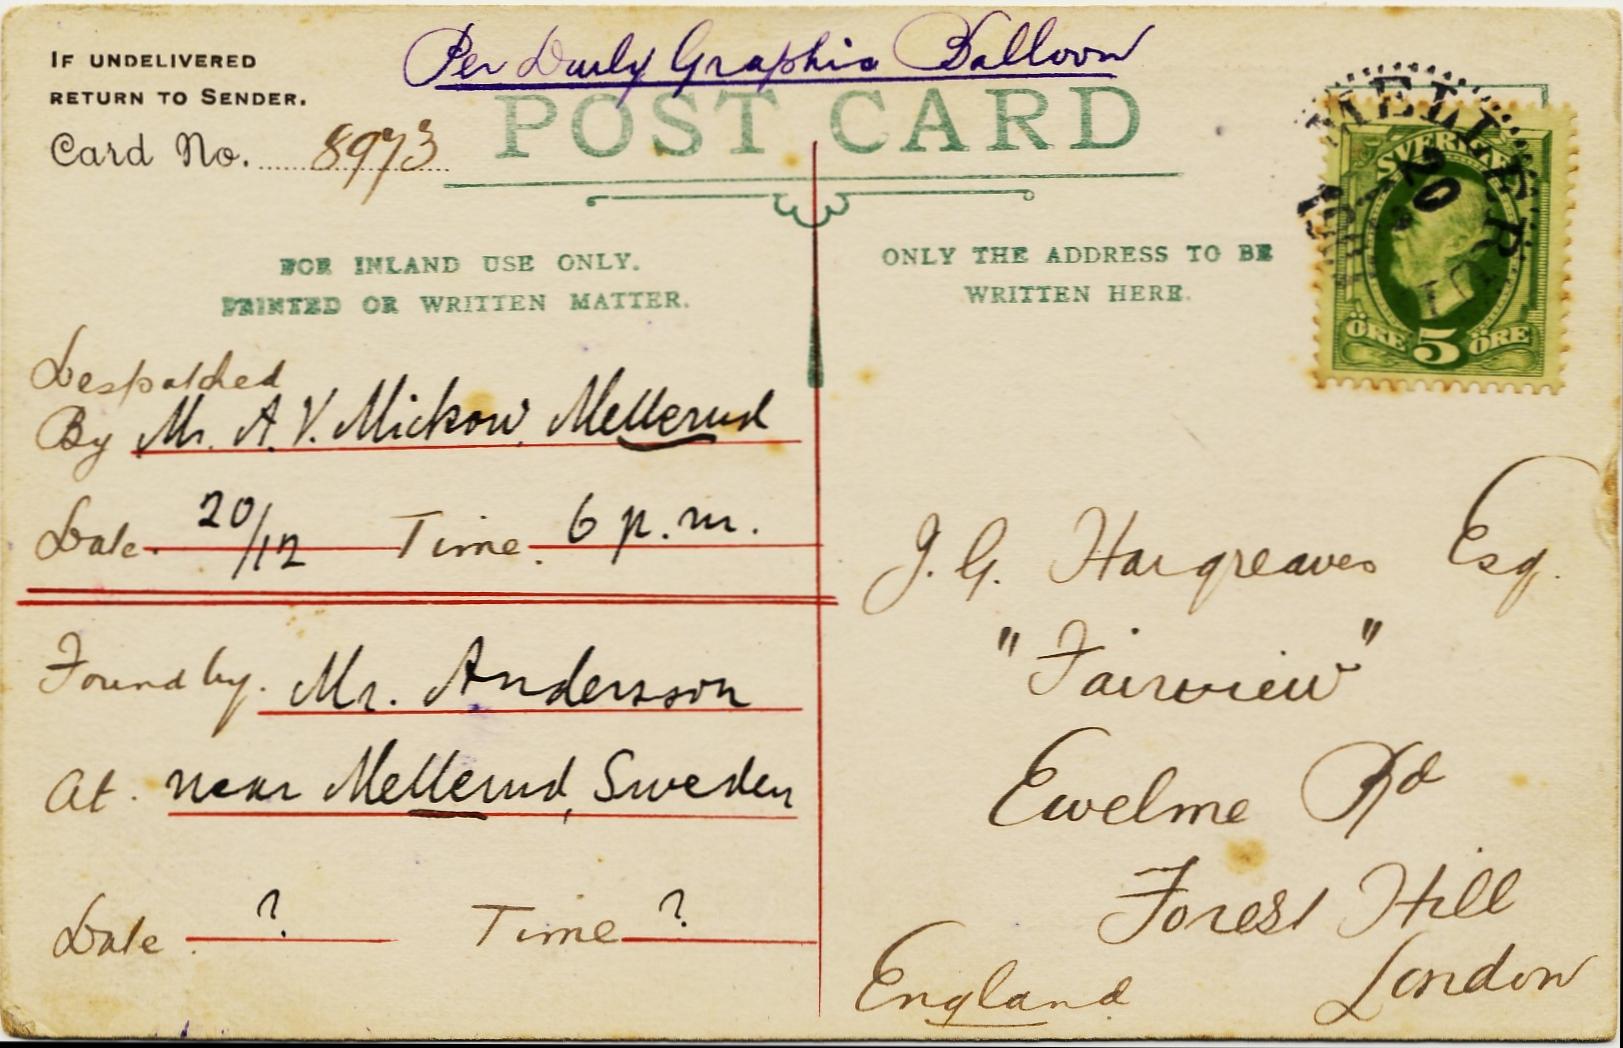 Per Daily Graphic Balloon
IF UNDELIVERED
RETURN TO SENDER.
Card No. 8973
POST CARD
FOR INLAND USE ONLY.
PRINTED OR WRITTEN MATTER.
Despatched
By Mr. A. V. Mickow, Mellerud
Date. 20/12 Time. 6 p.m.
Found by. Mr. Andersson
At. near Mellerud, Sweden
Date ? Time ?
ONLY THE ADDRESS TO BE
WRITTEN HERE.
MELLERUD
20
SVERIGE
ÖRE 5 ÖRE
J. G. Hargreaves Esq.
"Fairview"
Ewelme Rd
Forest Hill
London
England